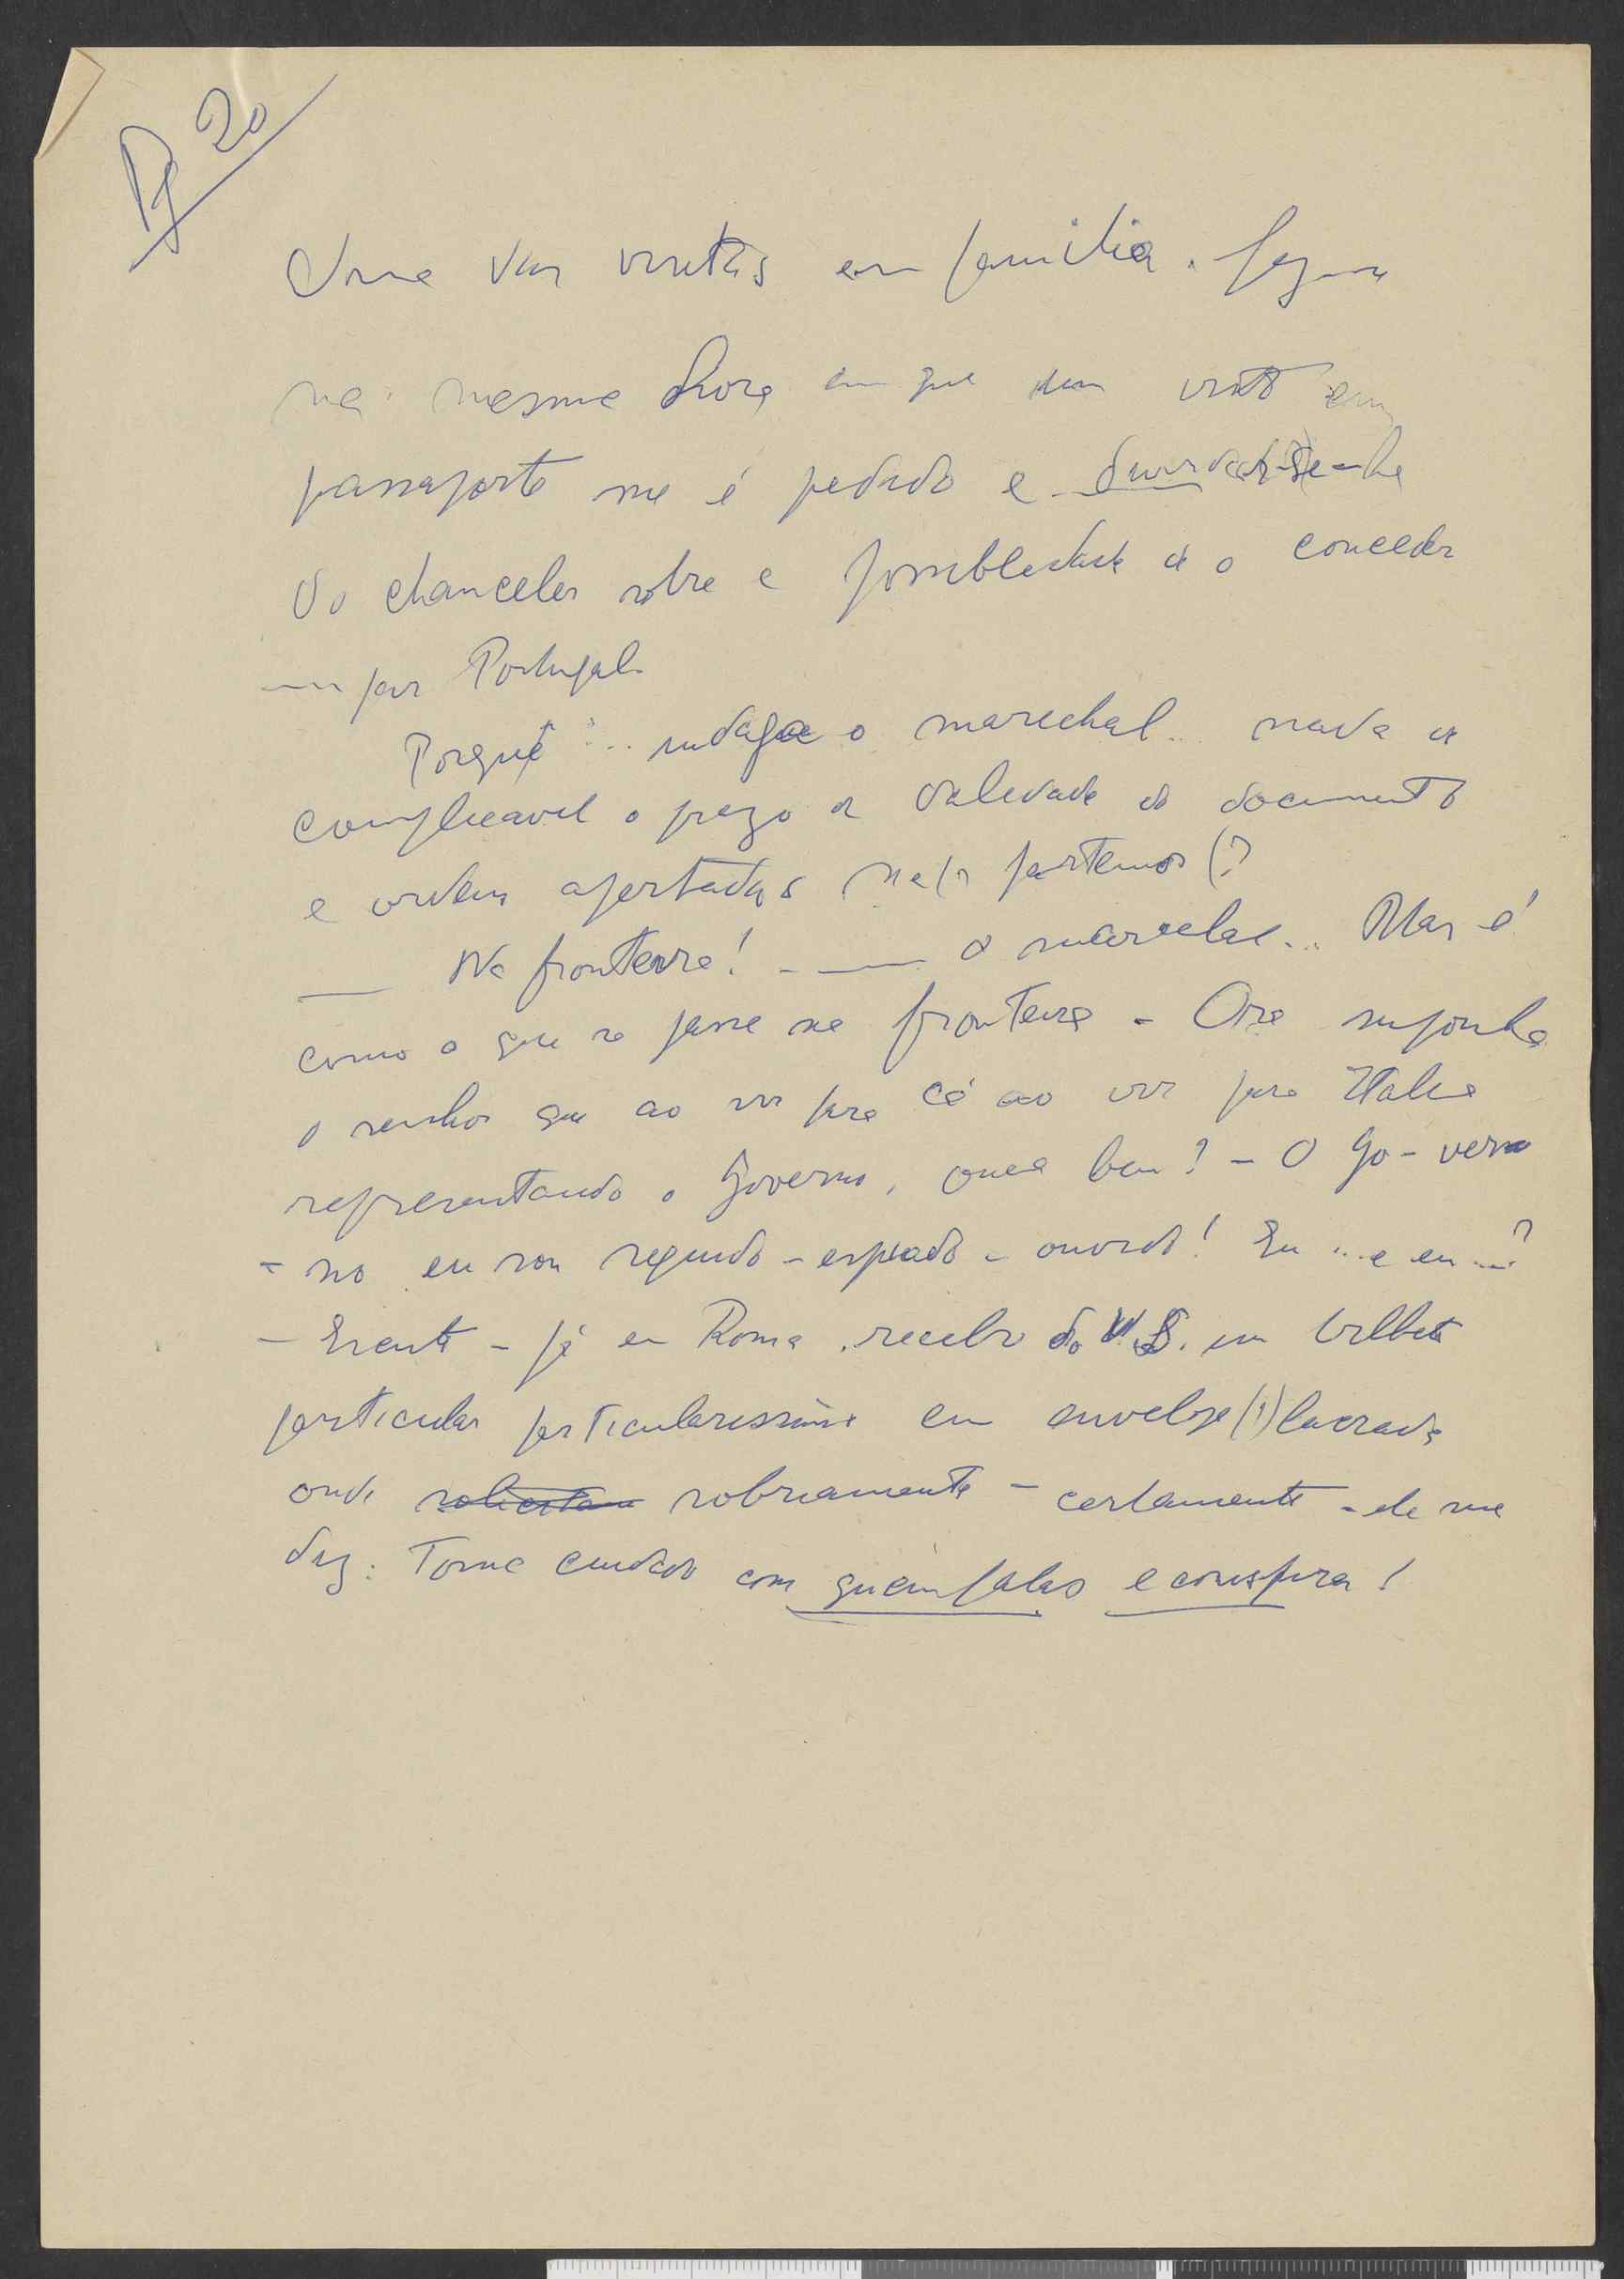 Pg 20
Uma das visitas em familia.
na mesma hora em que um visto em
passaporte me é pedido e
do chanceler sobre a possibilidade de o conceder
para Portugal.
Porquê... indaga o marechal... nada de
complicavel o prazo de validade do documento
e ordens apertadas
Na fronteira! - o marechal... Mas é
como o que se passa na fronteira - Ora suponha
o senhor que ao vir para cá ao vir para Italia
representando o Governo, ouça bem? - O Go-verno
- no eu sou seguido - espiado - ouvido! Eu ... e eu ...?
- Já em Roma recebo do um bilhete
particular particularissimo em envelope (?) lacrado
onde sobriamente - certamente - ele me
diz: Tome cuidado com quem falas e conspira!